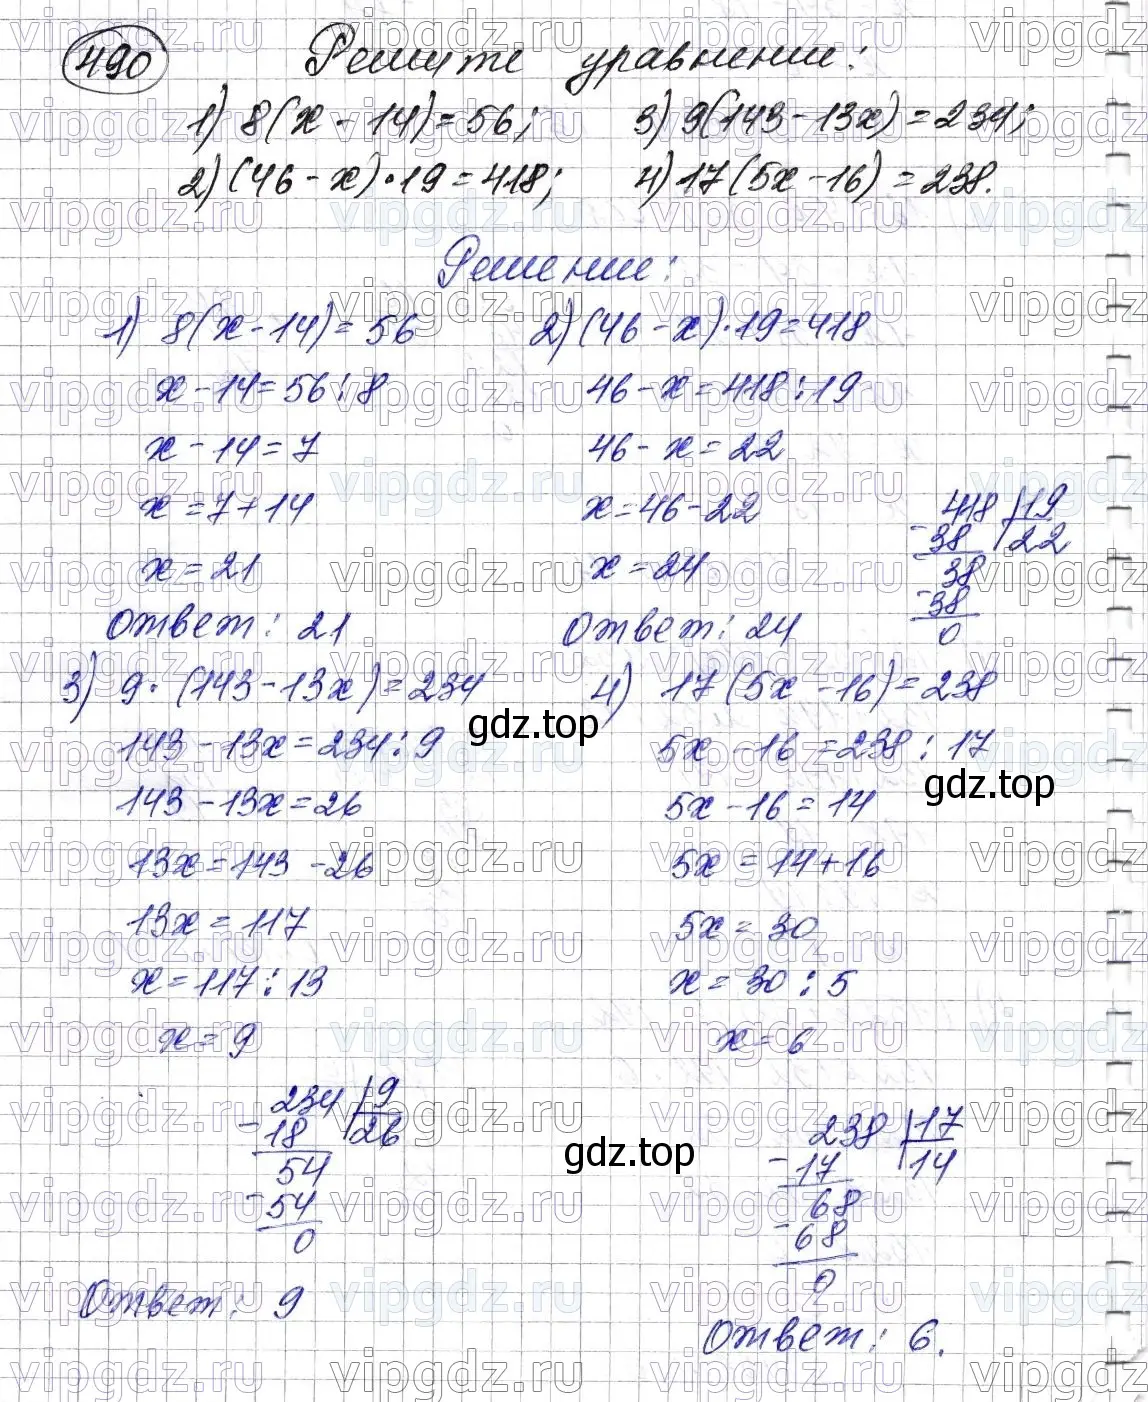 490 Решите уравнение:
1) 8(x - 14) = 56; 3) 9(143 - 13x) = 234;
2) (46 - x)·19 = 418; 4) 17(5x - 16) = 238.
Решение:
1) 8(x - 14) = 56
x - 14 = 56 : 8
x - 14 = 7
x = 7 + 14
x = 21
Ответ: 21
2) (46 - x)·19 = 418
46 - x = 418 : 19
46 - x = 22
x = 46 - 22
x = 24
Ответ: 24
418 | 19
- 38 | 22
38
- 38
0
3) 9·(143 - 13x) = 234
143 - 13x = 234 : 9
143 - 13x = 26
13x = 143 - 26
13x = 117
x = 117 : 13
x = 9
234 | 9
- 18 | 26
54
- 54
0
Ответ: 9
4) 17(5x - 16) = 238
5x - 16 = 238 : 17
5x - 16 = 14
5x = 14 + 16
5x = 30
x = 30 : 5
x = 6
238 | 17
- 17 | 14
68
- 68
0
Ответ: 6.
gdz.top
gdz.top
gdz.top
vipgdz.ru